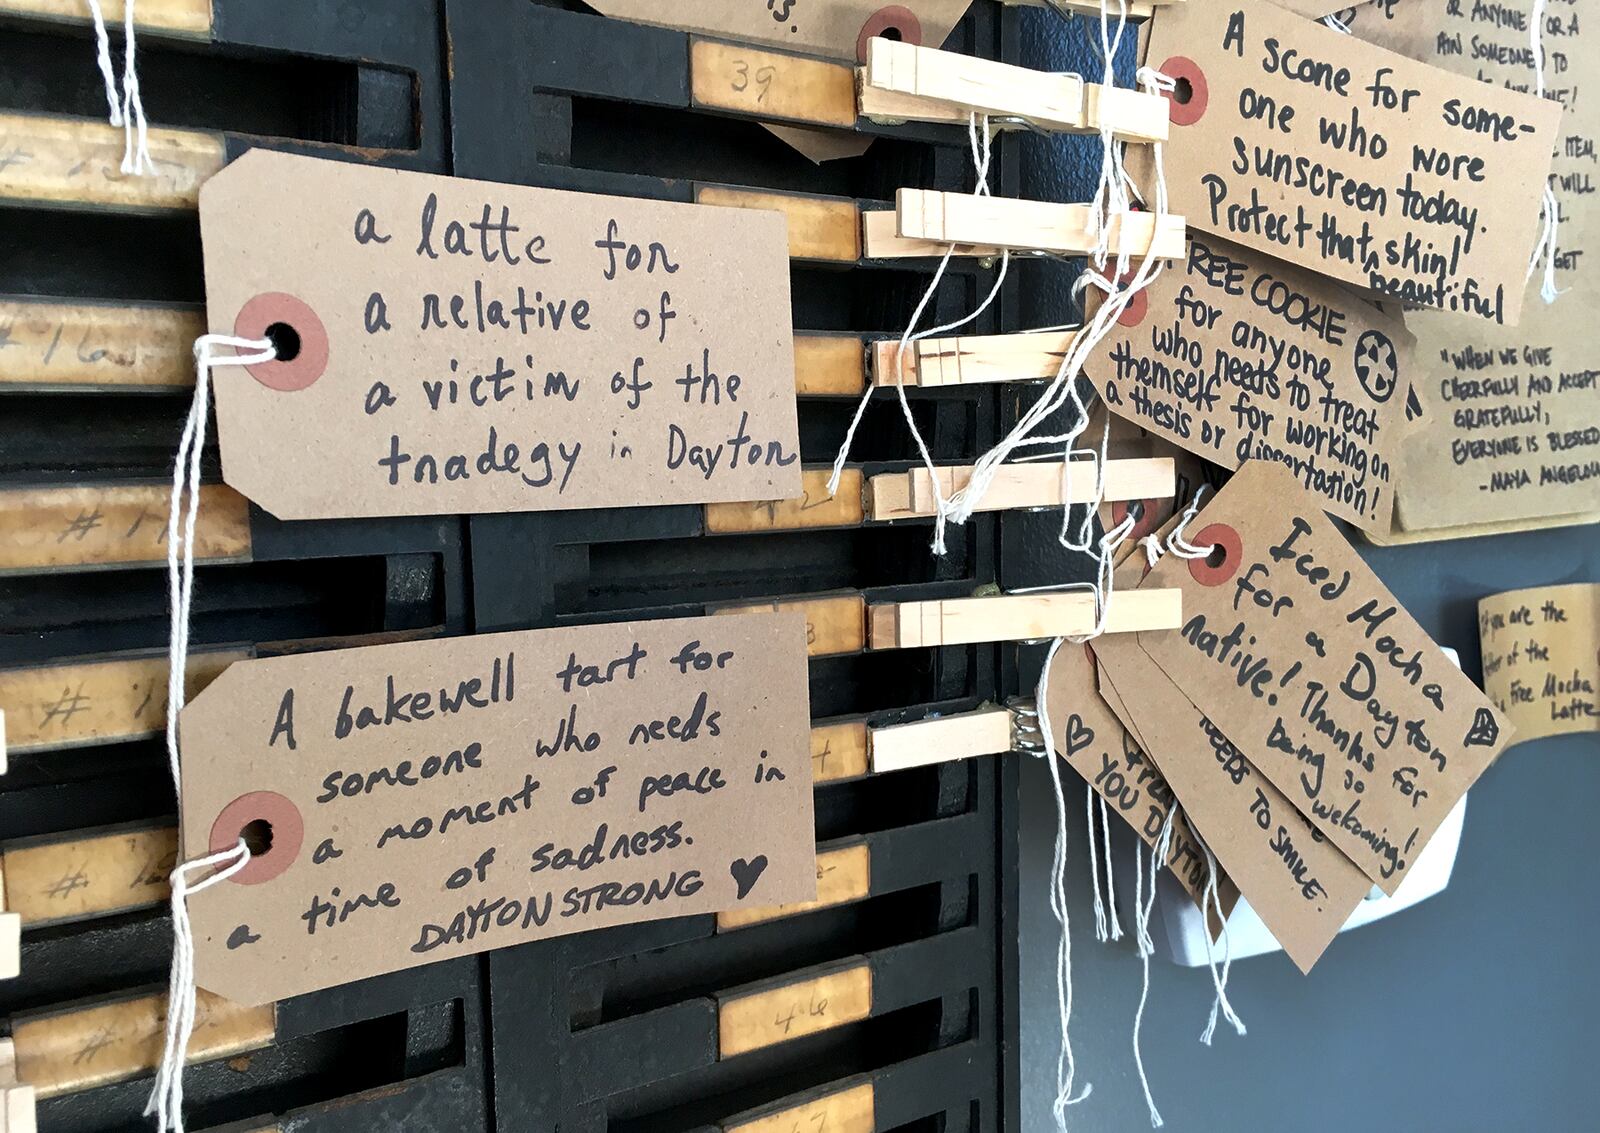 39
a latte for
a relative of
a victim of the
tnadegy in Dayton
A bakewell tart for
someone who needs
a moment of peace in
a time of sadness.
DAYTON STRONG
# 16
# 11
#
#
#
46
A scone for some-
one who wore
sunscreen today.
Protect that beautiful skin!
FREE COOKIE
for anyone
who needs to treat
themself for working on
a thesis or dissertation!
Iced Mocha
for a Dayton
native! Thanks for
being so
welcoming!
NEEDS TO SMILE.
YOU DAYTON!
OR ANYONE (OR A
SOMEONE) TO
ITEM,
WILL
GET
"WHEN WE GIVE
CHEERFULLY AND ACCEPT
GRATEFULLY,
EVERYONE IS BLESSED
-MAYA ANGELOU
you are the
of the
Free Mocha
Latte